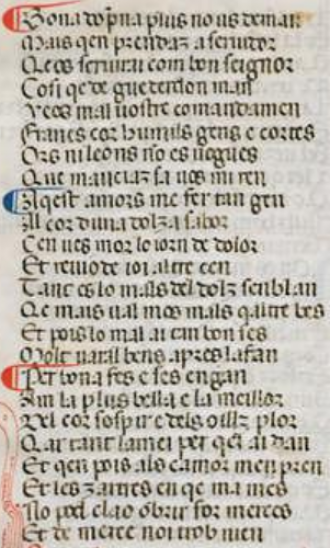 Bona dopna plus no us deman
Mais qen prendaz a seruidor
Qeos seruirai com bon seignor
Cosi qe de guederdon man
Veeos mal uostre comandamen
Francs cor humils gens e cortes
Ors ni leons no es uegues
Que mauciaz sa uos mi ren
Aqest amors me fer tan gen
Al cor duna dolza sabor
Cen ues mor lo iorn de dolor
Et reuio de ioi altre cen
Tant es lo mals del dolz senblan
Qe mais ual mos mals qaltre bes
Et pois lo mal ai tan bon ses
Molt uaral bens apres lafan
Per bona fes e ses engan
Am la plus bella e la meillor
Del cor sospir e dels oillz plor
Qar tant lamei per qei ai dan
Et qen pois als camor men pren
Et les zarnes en qe ma mes
No pod clao obrir for merces
Et de merce noi trob nien